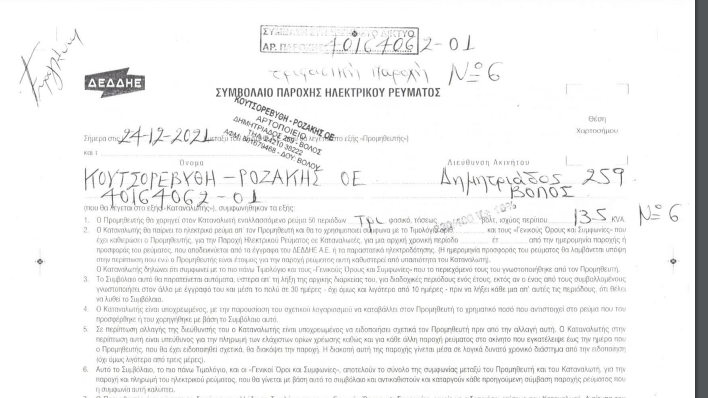 ΑΡ. ΠΑΡΟΧΗΣ 4016406 2-01
τριφασική παροχή Νο 6
ΔΕΔΔΗΕ
ΣΥΜΒΟΛΑΙΟ ΠΑΡΟΧΗΣ ΗΛΕΚΤΡΙΚΟΥ ΡΕΥΜΑΤΟΣ
Θέση
Χαρτοσήμου
ΚΟΥΤΣΟΡΕΒΥΘΗ - ΡΟΖΑΚΗΣ ΟΕ
ΑΡΤΟΠΟΙΕΙΟ
ΔΗΜΗΤΡΙΑΔΟΣ 259 - ΒΟΛΟΣ
ΔΟΥ: ΒΟΛΟΥ
Σήμερα στις 24-12-2021 μεταξύ του λέγεται στο εξής «Προμηθευτής»)
και τ
Όνομα Διεύθυνση Ακινήτου
ΚΟΥΤΣΟΡΕΒΥΘΗ - ΡΟΖΑΚΗΣ ΟΕ Δημητριάδος 259
40164062-01 ΒΟΛΟΣ
(που θα λέγεται στο εξής «Καταναλωτής»), συμφωνήθηκαν τα εξής:
1. Ο Προμηθευτής θα χορηγεί στον Καταναλωτή εναλλασσόμενο ρεύμα 50 περιόδων τρι φασικό, τάσεως βολτ, ισχύος περίπου 135 KVA. Νο 6
2. Ο Καταναλωτής θα παίρνει το ηλεκτρικό ρεύμα απ' τον Προμηθευτή και θα το χρησιμοποιεί σύμφωνα με το Τιμολόγιο και τους «Γενικούς Όρους και Συμφωνίες» που
έχει καθιερώσει ο Προμηθευτής, για την Παροχή Ηλεκτρικού Ρεύματος σε Καταναλωτές, για μια αρχική χρονική περίοδο έτ από την ημερομηνία παροχής ή
προσφοράς του ρεύματος, που αποδεικνύεται από τα έγγραφα του ΔΕΔΔΗΕ ή τα παραστατικά ηλεκτροδότησης. (Η ημερομηνία προσφοράς του ρεύματος θα λαμβάνεται υπόψη
στην περίπτωση που ενώ ο Προμηθευτής είναι έτοιμος για την παροχή ρεύματος αυτή καθυστερεί από υπαιτιότητα του Καταναλωτή).
Ο Καταναλωτής δηλώνει ότι συμφωνεί με το πιο πάνω Τιμολόγιο και τους «Γενικούς Όρους και Συμφωνίες» που το περιεχόμενό τους του γνωστοποιήθηκε από τον Προμηθευτή.
3. Το Συμβόλαιο αυτό θα παρατείνεται αυτόματα, ύστερα απ' τη λήξη της αρχικής διάρκειας του, για διαδοχικές περιόδους ενός έτους, εκτός αν ο ένας από τους συμβαλλομένους
γνωστοποιήσει στον άλλο με έγγραφό του και μέσα το πολύ σε 30 ημέρες - όχι όμως και λιγότερο από 10 ημέρες - πριν να λήξει κάθε μια απ' αυτές τις περιόδους, ότι θέλει
να λυθεί το Συμβόλαιο.
4. Ο Καταναλωτής είναι υποχρεωμένος, με την παρουσίαση του σχετικού λογαριασμού να καταβάλλει στον Προμηθευτή το χρηματικό ποσό που αντιστοιχεί στο ρεύμα που του
προσφέρθηκε ή του χορηγήθηκε με βάση το Συμβόλαιο αυτό.
5. Σε περίπτωση αλλαγής της διεύθυνσής του ο Καταναλωτής είναι υποχρεωμένος να ειδοποιήσει σχετικά τον Προμηθευτή πριν από την αλλαγή αυτή. Ο Καταναλωτής στην
περίπτωση αυτή είναι υπεύθυνος για την πληρωμή των ελάχιστων ορίων χρέωσης καθώς και για κάθε άλλη παροχή ρεύματος στο ακίνητο που εγκατέλειψε έως την ημέρα που
ο Προμηθευτής, που θα έχει ειδοποιηθεί σχετικά, θα διακόψει την παροχή. Η διακοπή αυτή της παροχής γίνεται μέσα σε λογικά δυνατό χρονικό διάστημα από την ειδοποίηση
(όχι όμως λιγότερο από τρεις μέρες).
6. Αυτό το Συμβόλαιο, το πιο πάνω Τιμολόγιο, και οι «Γενικοί Όροι και Συμφωνίες», αποτελούν το σύνολο της συμφωνίας μεταξύ του Προμηθευτή και του Καταναλωτή, για την
παροχή και πληρωμή του ηλεκτρικού ρεύματος, που θα γίνεται με βάση αυτό το συμβόλαιο και αντικαθιστούν και καταργούν κάθε προηγούμενη σύμβαση παροχής ρεύματος που
η συμφωνία αυτή καλύπτει.